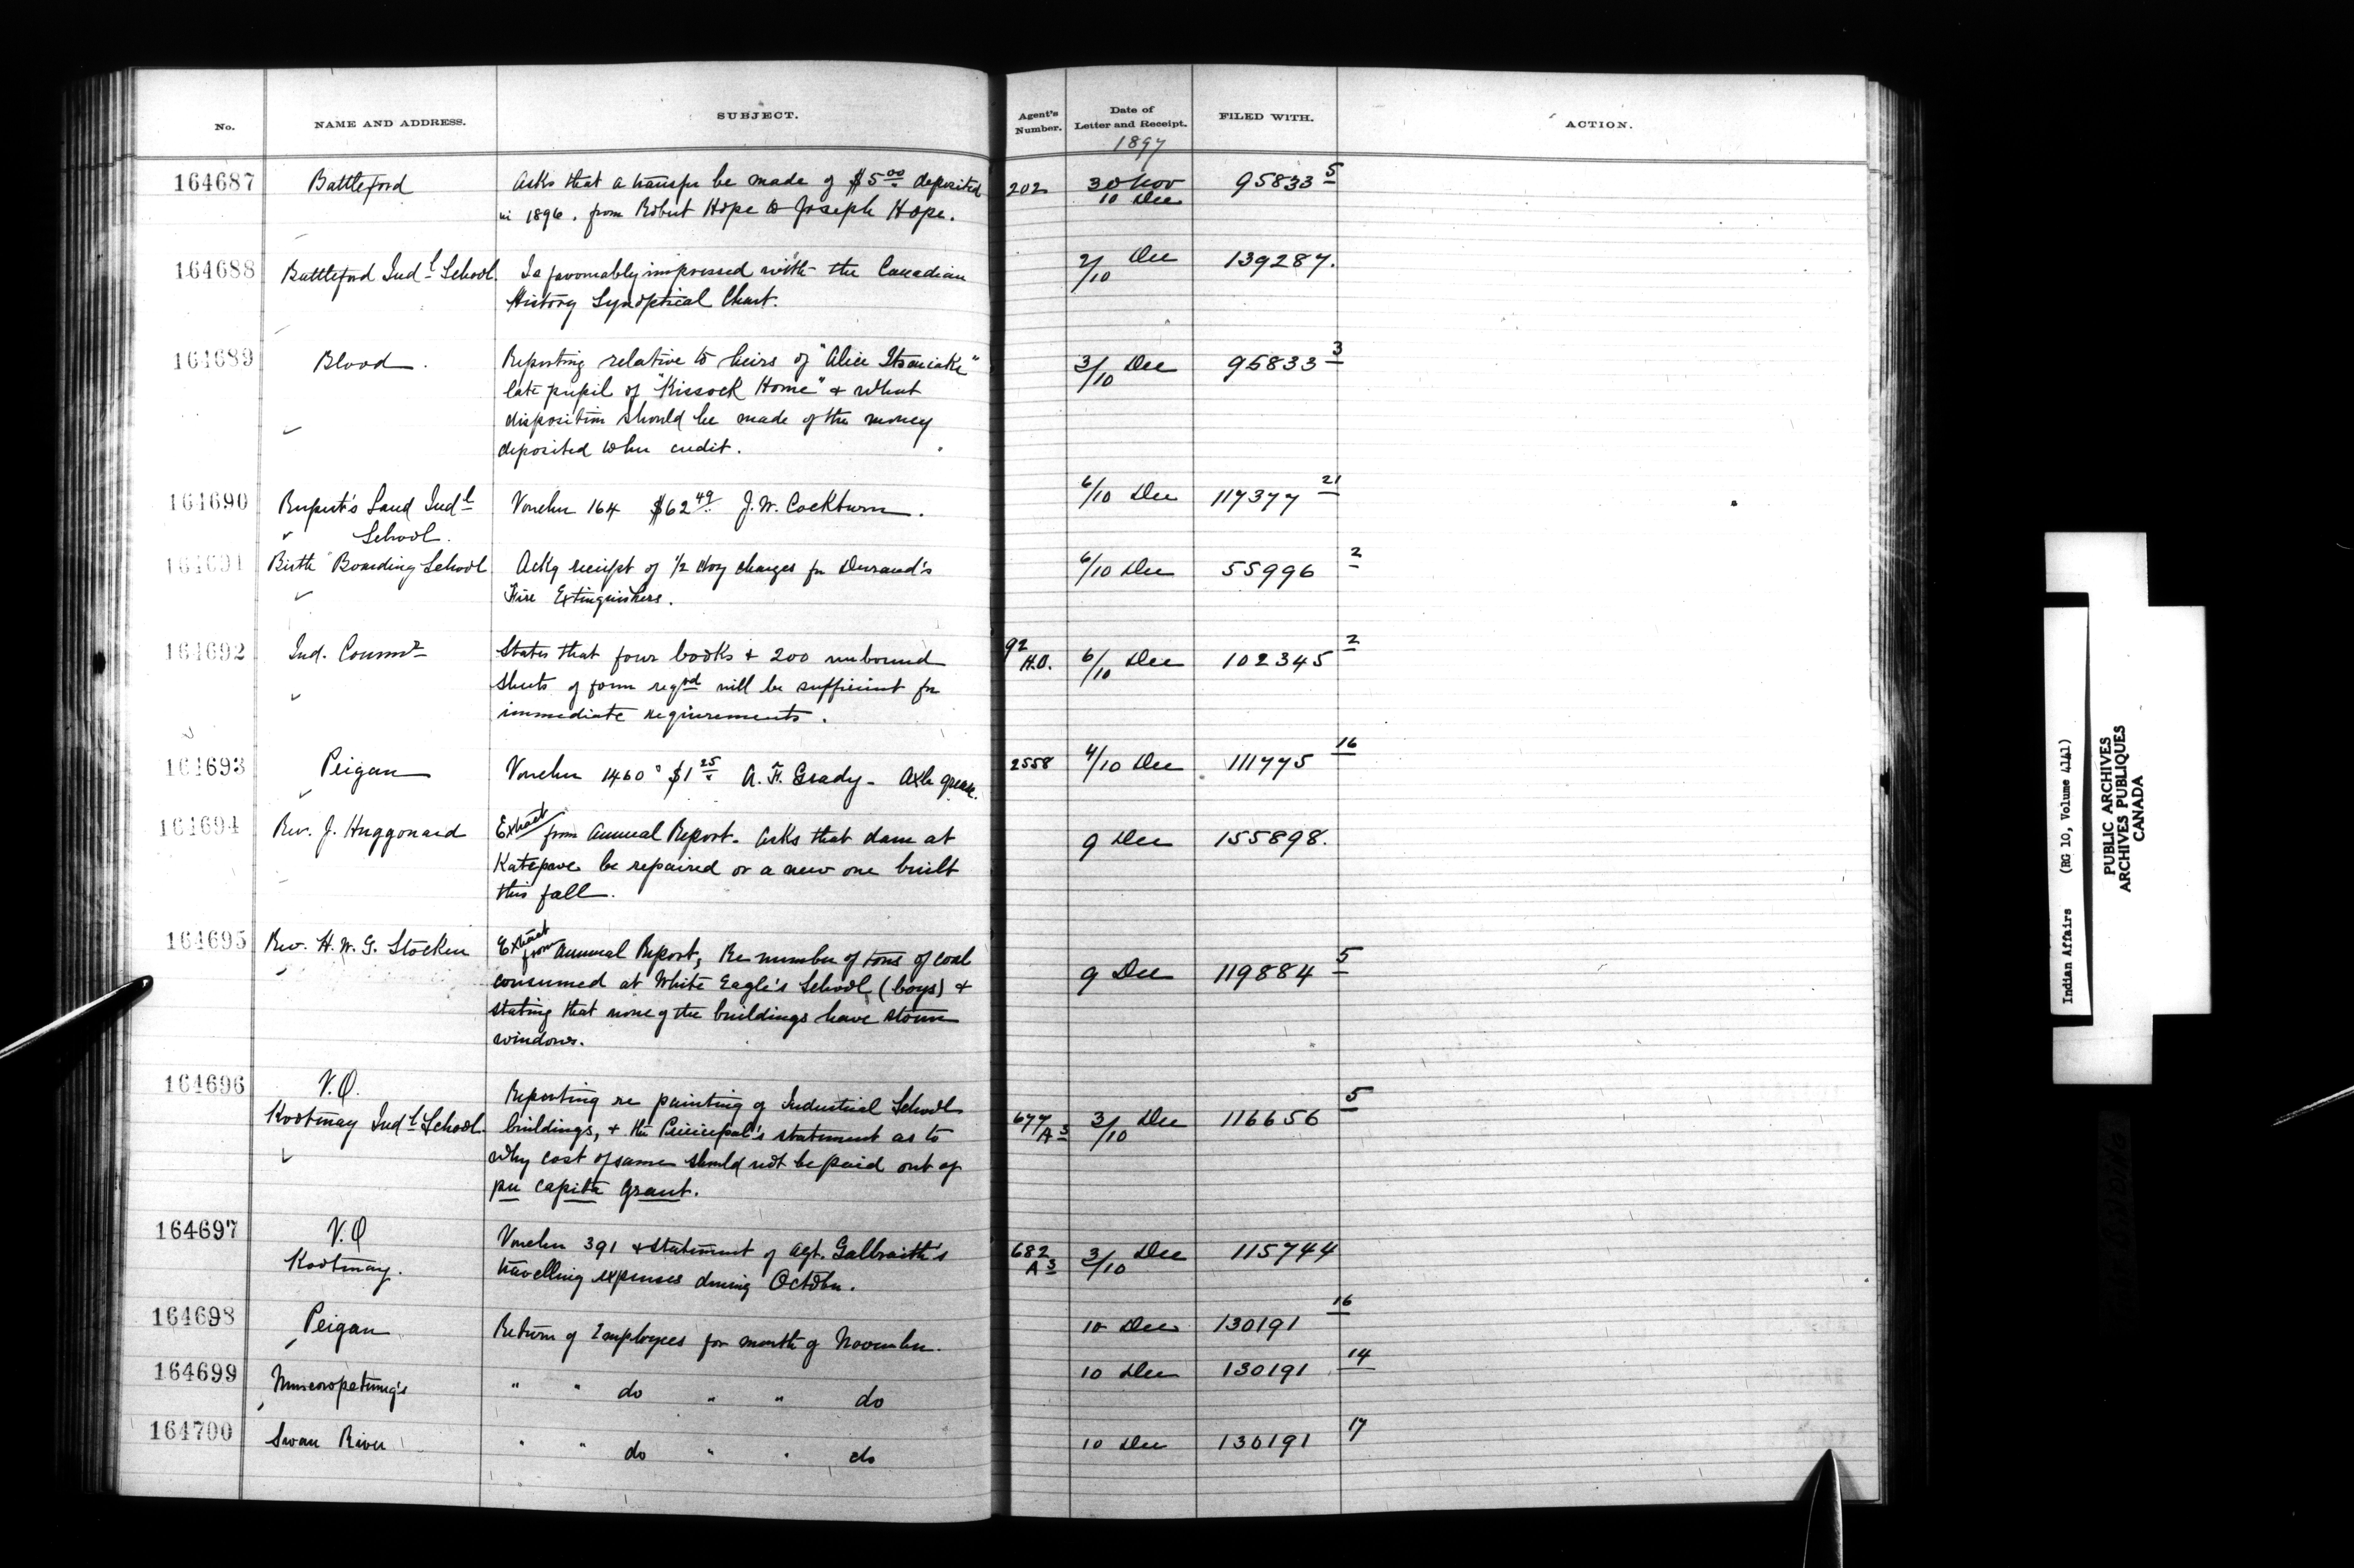 No. NAME AND ADDRESS. SUBJECT. Agent's Number. Date of Letter and Receipt. FILED WITH. ACTION.
1897
164687 Battleford Asks that a transfer be made of $5.00 deposited 202 30 Nov 95833 5
in 1896. from Robert Hope to Joseph Hope. 10 Dec
164688 Battleford Indl School. Is favourably impressed with the Canadian 2/10 Dec 139287.
History Synoptical Chart.
164689 Blood. Reporting relative to heirs of "Alice 3/10 Dec 95833 3
late pupil of "Kissock Home" & what
disposition should be made of the money
deposited to her credit.
164690 Rupert's Land Indl Voucher 164 $62.49 J. W. Cockburn. 6/10 Dec 117377 21
School.
164691 Birtle Boarding School Ackg receipt of 1/2 doz charges for Durand's 6/10 Dec 55996 2
Fire Extinguishers.
164692 Ind. Commr States that four books & 200 unbound 92 H.O. 6/10 Dec 102345 2
sheets of form reqrd will be sufficient for
immediate requirements.
164693 Peigan Voucher 1460 $1.25 A. F. Grady - Axle grease. 2558 4/10 Dec 111775 16
164694 Rev. J. Huggonard Extract from Annual Report. Asks that dam at 9 Dec 155898.
Katepwe be repaired or a new one built
this fall.
164695 Rev. H. W. G. Stocken Extract from Annual Report, Re number of tons of coal 9 Dec 119884 5
consumed at White Eagle's School (boys) &
stating that none of the buildings have storm
windows.
164696 V.O. Reporting re painting of Industrial School
Kootenay Indl School. buildings, & the Principal's statement as to 677/A3 3/10 Dec 116656 5
why cost of same should not be paid out of
per capita grant.
164697 V.O Voucher 391 & statement of Agt. Galbraith's 682 A3 3/10 Dec 115744
Kootenay. travelling expenses during October.
164698 Peigan Return of Employees for month of November. 10 Dec 130191 16
164699 Muscowpetung's " " do " " do 10 Dec 130191 14
164700 Swan River " " do " " do 10 Dec 130191 17
Indian Affairs (RG 10, Volume 4141)
PUBLIC ARCHIVES
ARCHIVES PUBLIQUES
CANADA